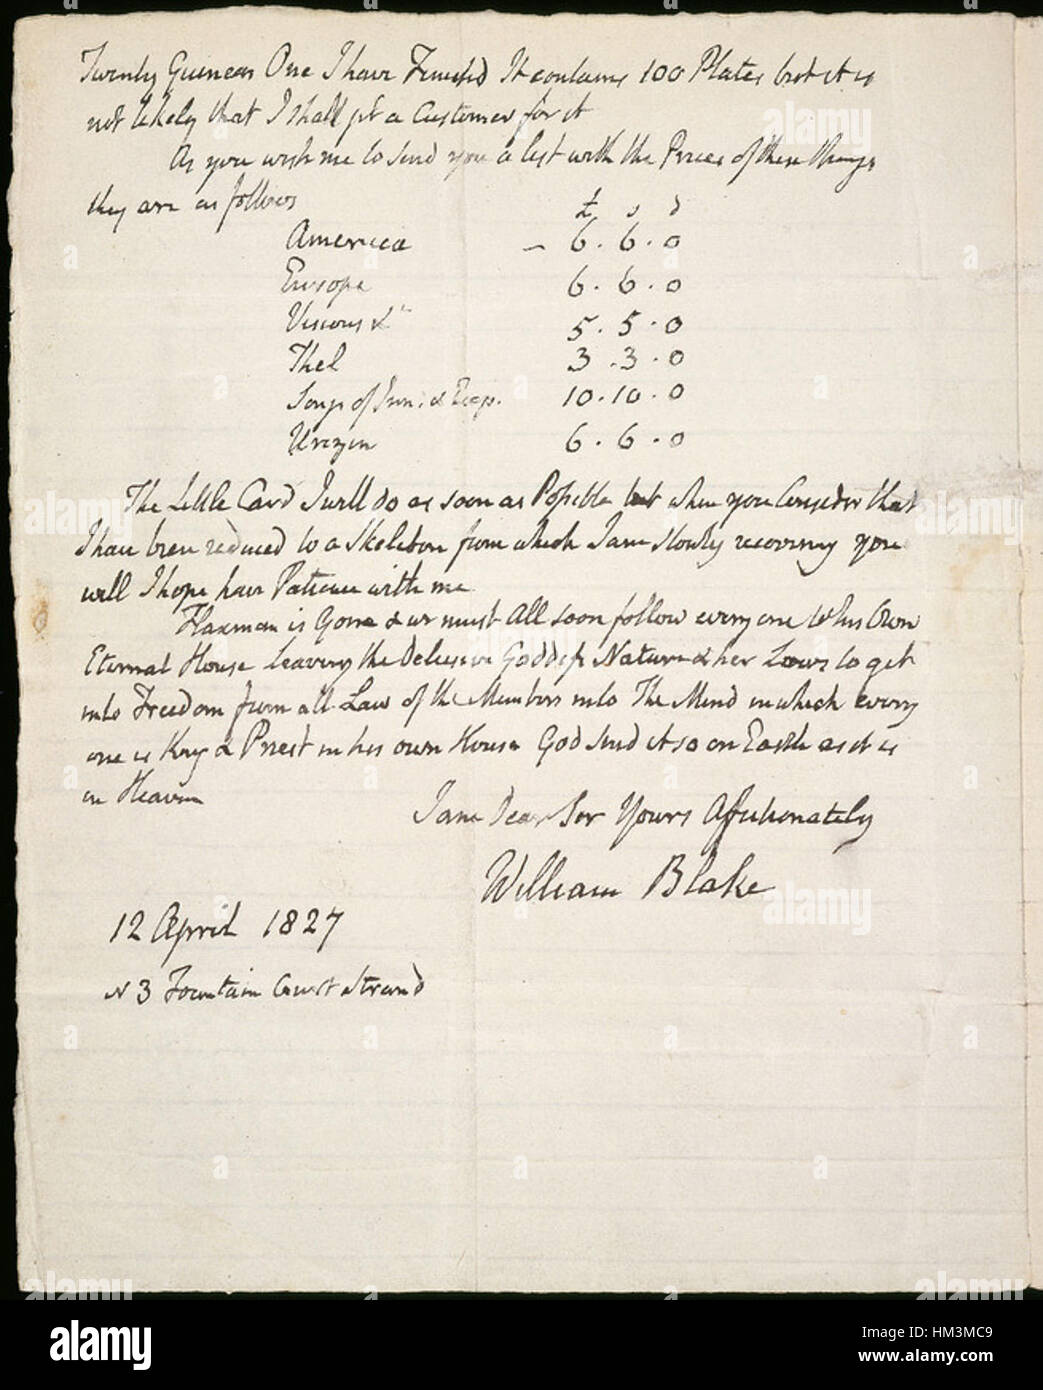 Twenty Guineas One I have Finishd It contains 100 Plates but it is
not likely that I shall get a Customer for it
As you wish me to send you a list with the Prices of these things
they are as follows
£ s d
America – 6 . 6 . 0
Europe 6 . 6 . 0
Visions &c 5 . 5 . 0
Thel 3 . 3 . 0
Songs of Inn. & Exp. 10 . 10 . 0
Urizen 6 . 6 . 0
The Little Card I will do as soon as Possible but when you Consider that
I have been reduced to a Skeleton from which I am slowly recovering you
will I hope have Patience with me
Flaxman is Gone & we must All soon follow every one to his Own
Eternal House Leaving the Delusive Goddess Nature & her Laws to get
into Freedom from all Law of the Members into The Mind in which every
one is King & Priest in his own House God send it so on Earth as it is
in Heaven
I am Dear Sir Yours Affectionately
William Blake
12 April 1827
N 3 Fountain Court Strand
alamy
Image ID: HM3MC9
www.alamy.com